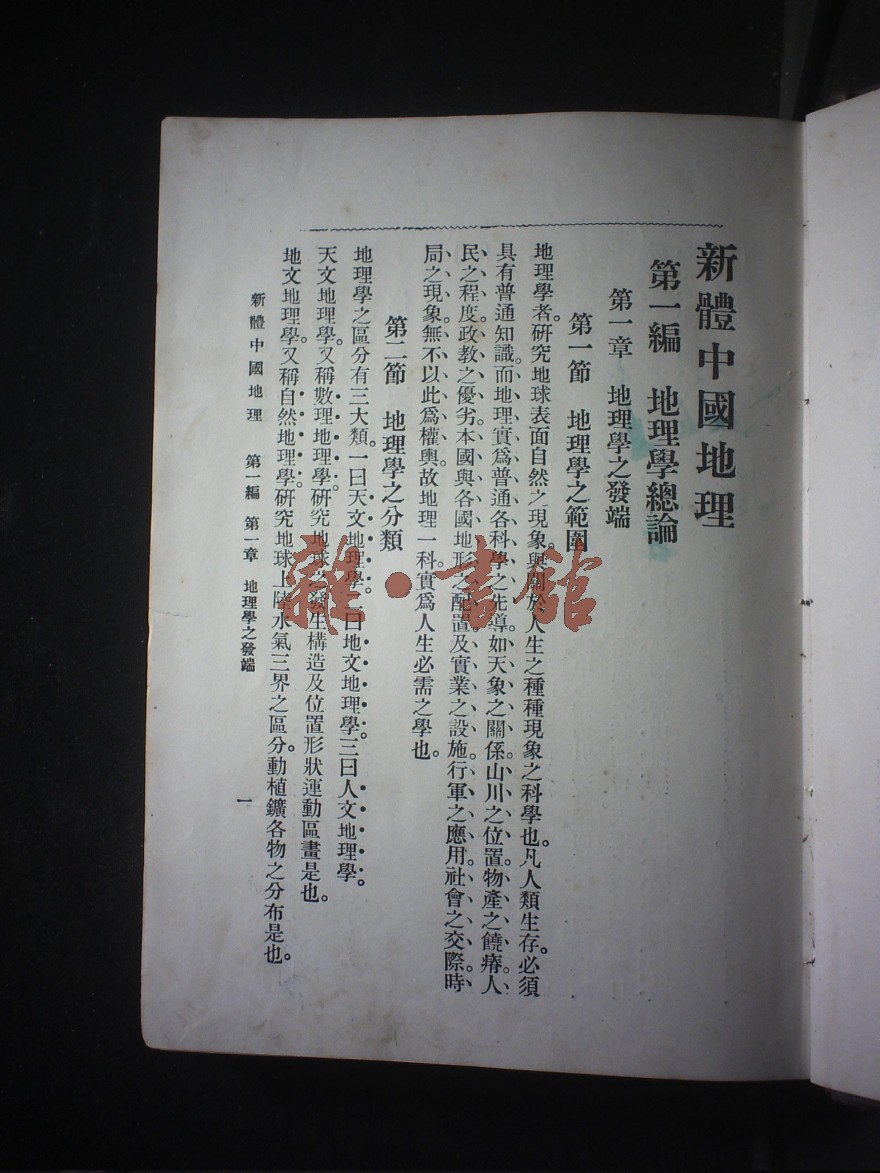 新體中國地理
第一編　地理學總論
第一章　地理學之發端
第一節　地理學之範圍
地理學者。研究地球表面自然之現象。與關於人生之種種現象之科學也。凡人類生存。必須
具有普通知識。而地理實爲普通各科學之先導。如天象之關係。山川之位置。物產之饒瘠。人
民之程度。政教之優劣。本國與各國地形之配置。及實業之設施。行軍之應用。社會之交際。時
局之現象。無不以此爲權輿。故地理一科。實爲人生必需之學也。
第二節　地理學之分類
地理學之區分有三大類。一曰天文地理學。二曰地文地理學。三曰人文地理學。
天文地理學。又稱數理地理學。研究地球之發生構造及位置形狀運動區畫是也。
地文地理學。又稱自然地理學。研究地球上陸水氣三界之區分。動植鑛各物之分布是也。
新體中國地理　第一編　第一章　地理學之發端
一
雜·書館